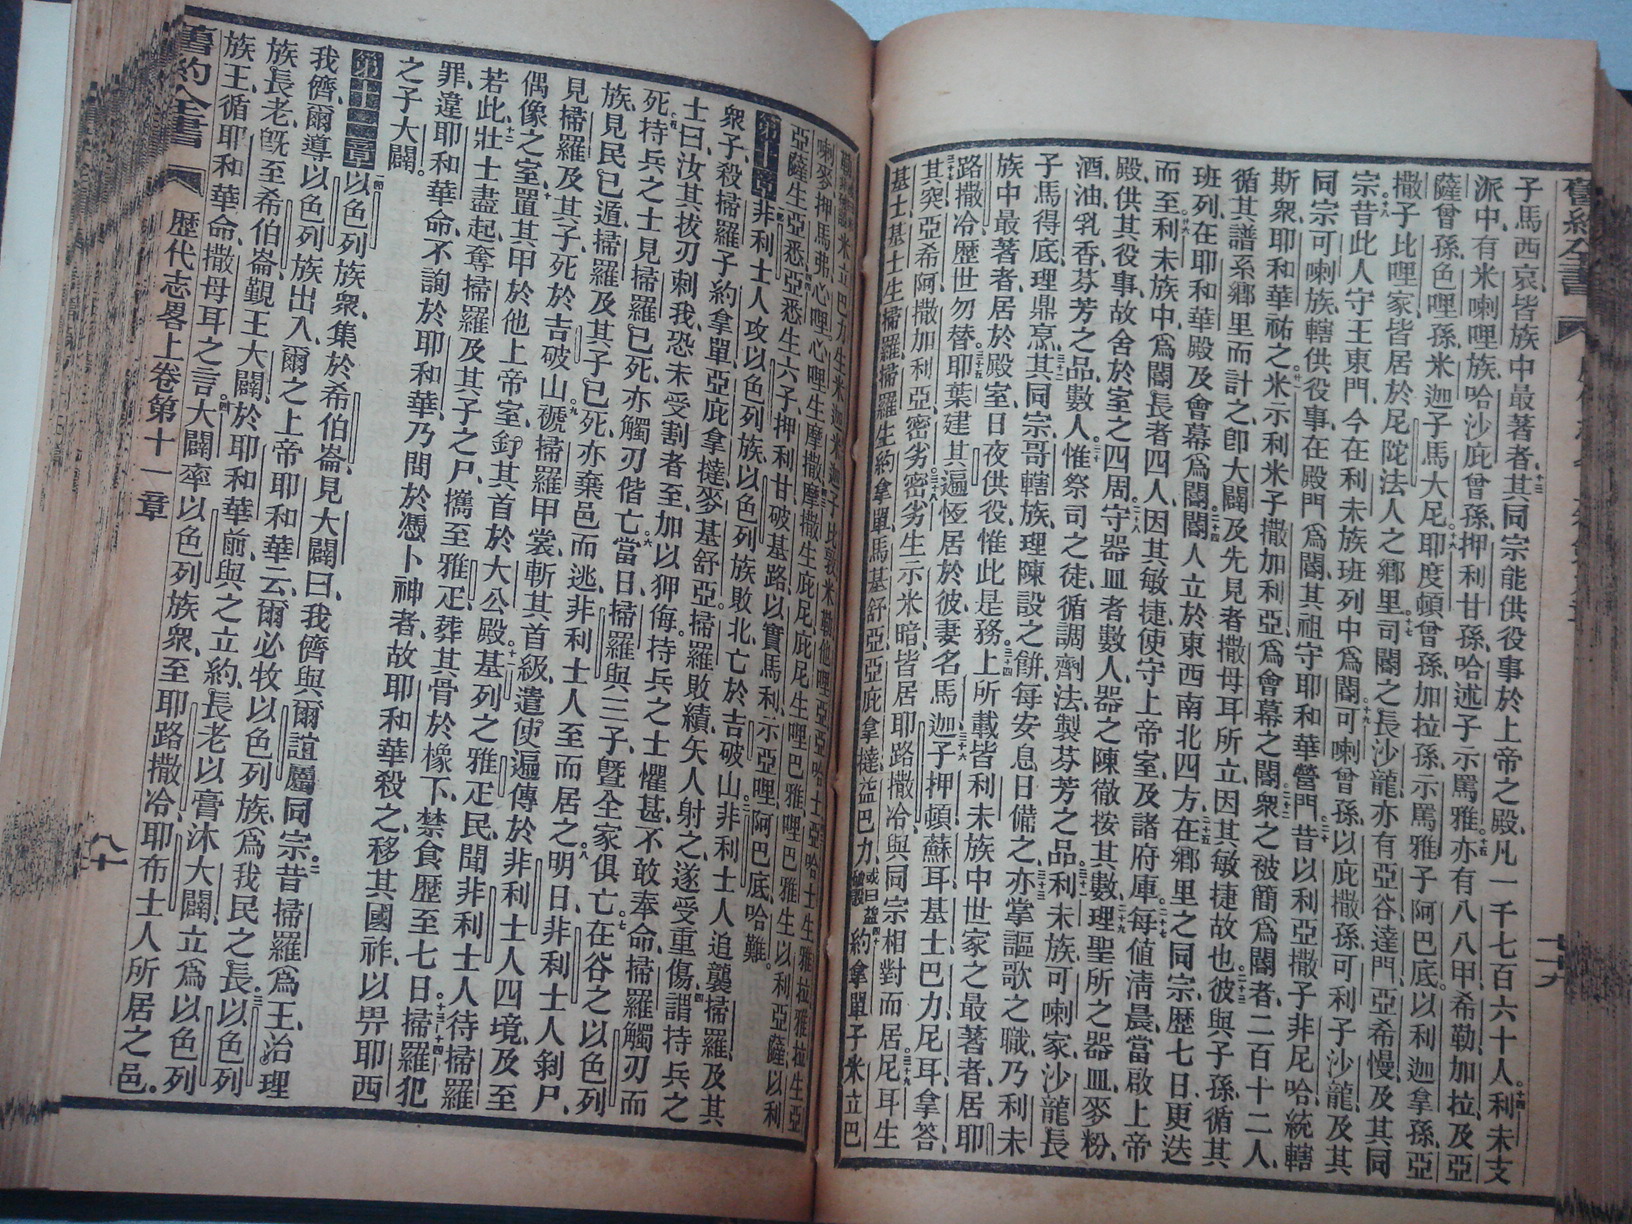 舊約全書
子馬西哀皆族中最著者其同宗能供役事於上帝之殿凡一千七百六十人利未支
派中有米喇哩族哈沙庇曾孫押利甘孫哈述子示罵雅亦有八八甲希勒加拉及亞
薩曾孫色哩孫米迦子馬大尼耶度頓曾孫加拉孫示罵雅子阿巴底以利迦拿孫亞
撒子比哩家皆居於尼陀法人之鄉里司閽之長沙龍亦有亞谷達門亞希幔及其同
宗昔此人守王東門今在利未族班列中為閽可喇曾孫以庇撒孫可利子沙龍及其
同宗可喇族轄供役事在殿門為閽其祖守耶和華營門昔以利亞撒子非尼哈統轄
斯衆耶和華祐之米示利米子撒加利亞為會幕之閽衆之被簡為閽者二百十二人
循其譜系鄉里而計之卽大闢及先見者撒母耳所立因其敏捷故也彼與子孫循其
班列在耶和華殿及會幕為閽閽人立於東西南北四方在鄉里之同宗歷七日更迭
而至利未族中為閽長者四人因其敏捷使守上帝室及諸府庫每值清晨當啟上帝
殿供其役事故舍於室之四周守器皿者數人器之陳徹按其數理聖所之器皿麥粉
酒油乳香芬芳之品數人惟祭司之徒循調劑法製芬芳之品利未族可喇家沙龍長
子馬得底理鼎烹其同宗哥轄族理陳設之餅每安息日備之亦掌謳歌之職乃利未
族中最著者居於殿室日夜供役惟此是務上所載皆利未族中世家之最著者居耶
路撒冷歷世勿替耶葉建其遍恆居於彼妻名馬迦子押頓蘇耳基士巴力尼耳拿答
其突亞希阿撒加利亞密劣密劣生示米暗皆居耶路撒冷與同宗相對而居尼耳生
基士基士生掃羅掃羅生約拿單馬基舒亞亞庇拿撻益巴力約拿單子米立巴
力米立巴力生米迦米迦子比敦米勒他哩亞亞哈士亞哈士生雅拉雅拉生亞
喇麥押馬弗心哩心哩生摩撒摩撒生庇尼庇尼生哩巴雅哩巴雅生以利亞薩以利
亞薩生亞悉亞悉生六子押利甘破基路以實馬利示亞哩阿巴底哈難
第十章非利士人攻以色列族以色列族敗北亡於吉破山非利士人追襲掃羅及其
衆子殺掃羅子約拿單亞庇拿撻麥基舒亞掃羅敗績矢人射之遂受重傷謂持兵之
士曰汝其拔刃刺我恐未受割者至加以狎侮持兵之士懼甚不敢奉命掃羅觸刃而
死持兵之士見掃羅已死亦觸刃偕亡當日掃羅與三子曁全家俱亡在谷之以色列
族見民已遁掃羅及其子已死亦棄邑而逃非利士人至而居之明日非利士人剝尸
見掃羅及其子死於吉破山褫掃羅甲裳斬其首級遣使遍傳於非利士人四境及至
偶像之室置其甲於他上帝室釘其首於大公殿基列之雅疋民聞非利士人待掃羅
若此壯士盡起奪掃羅及其子之尸攜至雅疋葬其骨於橡下禁食歷至七日掃羅犯
罪違耶和華命不詢於耶和華乃問於憑卜神者故耶和華殺之移其國祚以畀耶西
之子大闢
第十一章以色列族衆集於希伯崙見大闢曰我儕與爾誼屬同宗昔掃羅為王治理
我儕爾導以色列族出入爾之上帝耶和華云爾必牧以色列族為我民之長以色列
族長老旣至希伯崙覲王大闢於耶和華前與之立約長老以膏沐大闢立為以色列
族王循耶和華命撒母耳之言大闢率以色列族衆至耶路撒冷耶布士人所居之邑
舊約全書 歷代志畧上卷第十一章